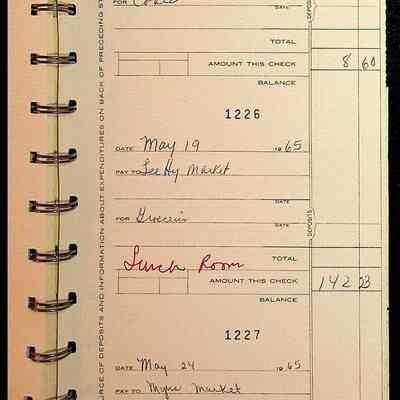 FOR Cokes DATE
TOTAL
AMOUNT THIS CHECK 8 60
BALANCE
1226
DATE May 19 1965
PAY TO Lee Hy Market
DATE
FOR Groceries
DATE
Lunch Room TOTAL
AMOUNT THIS CHECK 142 23
BALANCE
1227
DATE May 24 1965
PAY TO Market
DEPOSITS
DEPOSITS
RCE OF DEPOSITS AND INFORMATION ABOUT EXPENDITURES ON BACK OF PRECEDING ST